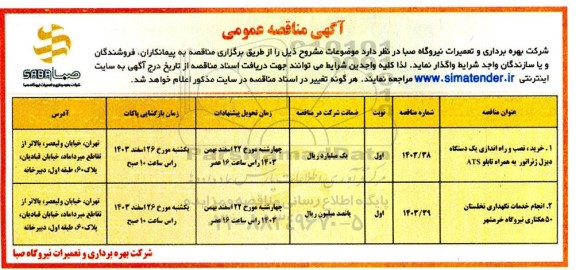 آگهی مناقصه عمومی
صبا SABA
شرکت بهره برداری و تعمیرات نیروگاه صبا
شرکت بهره برداری و تعمیرات نیروگاه صبا در نظر دارد موضوعات مشروح ذیل را از طریق برگزاری مناقصه به پیمانکاران، فروشندگان
و یا سازندگان واجد شرایط واگذار نماید. لذا کلیه واجدین شرایط می توانند جهت دریافت اسناد مناقصه از تاریخ درج آگهی به سایت
اینترنتی www.simatender.ir مراجعه نمایند. هر گونه تغییر در اسناد مناقصه در سایت مذکور اعلام خواهد شد.
عنوان مناقصه | شماره مناقصه | نوبت | ضمانت شرکت در مناقصه | زمان تحویل پیشنهادات | زمان بازگشایی پاکات | آدرس
۱. خرید ، نصب و راه اندازی یک دستگاه دیزل ژنراتور به همراه تابلو ATS | ۱۴۰۳/۳۸ | اول | یک میلیارد ریال | چهارشنبه مورخ ۲۴ اسفند بهمن ۱۴۰۳ راس ساعت ۱۶ عصر | یکشنبه مورخ ۲۶ اسفند ۱۴۰۳ راس ساعت ۱۰ صبح | تهران، خیابان ولیعصر، بالاتر از تقاطع میرداماد، خیابان قبادیان، پلاک۶۰، طبقه اول، دبیرخانه
۲. انجام خدمات نگهداری نخلستان ۵۰هکتاری نیروگاه خرمشهر | ۱۴۰۳/۳۹ | اول | پانصد میلیون ریال | چهارشنبه مورخ ۲۴ اسفند بهمن ۱۴۰۳ راس ساعت ۱۶ عصر | یکشنبه مورخ ۲۶ اسفند ۱۴۰۳ راس ساعت ۱۰ صبح | تهران، خیابان ولیعصر، بالاتر از تقاطع میرداماد، خیابان قبادیان، پلاک۶۰، طبقه اول، دبیرخانه
شرکت بهره برداری و تعمیرات نیروگاه صبا
۰۲۱-۸۸۳۴۹۶۷۰-۵